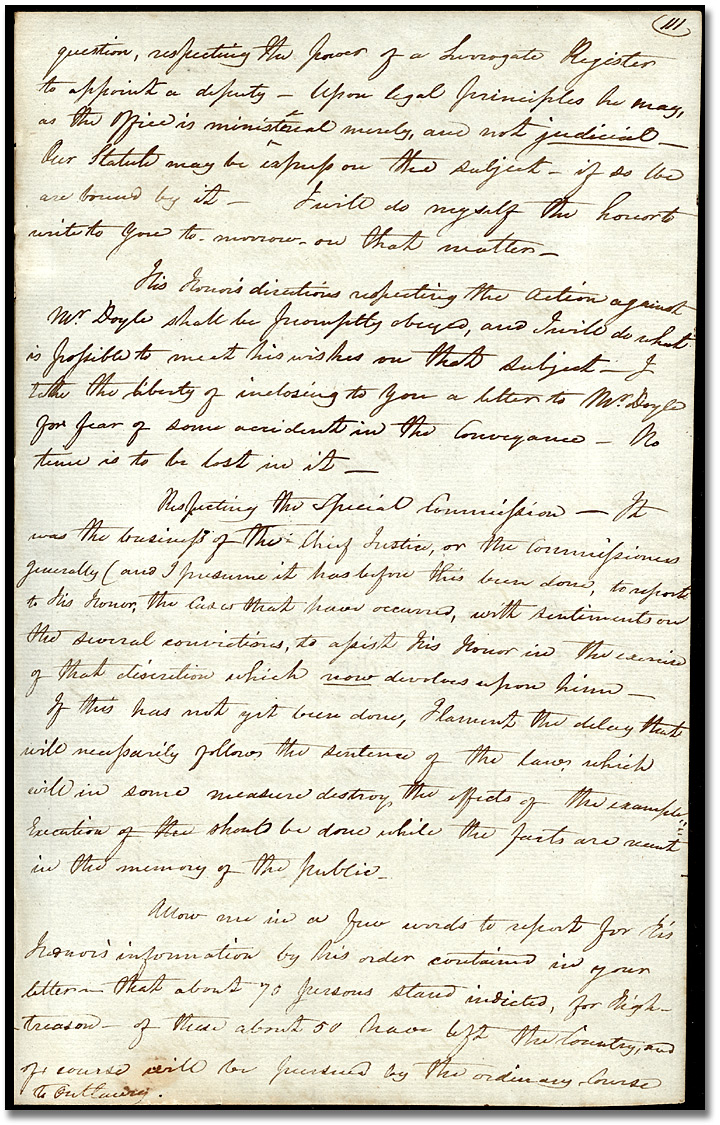 111
question, respecting the power of a Surrogate Register
to appoint a deputy – Upon legal principles he may,
as the Office is ministerial merely, and not judicial –
Our Statute may be express on the subject – if so we
are bound by it – I will do myself the honor to
write to you to-morrow on that matter –
His Honor's directions respecting the Action against
Mr. Doyle shall be promptly obeyed, and I will do what
is possible to meet his wishes on that subject – I
take the liberty of inclosing to you a letter to Mr. Doyle
for fear of some accident in the Conveyance – No
time is to be lost in it –
Respecting the Special Commission – It
was the business of the Chief Justice, or the Commissioners
generally (and I presume it has before this been done, to report
to His Honor, the Cases that have occurred, with sentiments on
the several convictions, to assist His Honor in the exercise
of that discretion which now devolves upon him –
If this has not yet been done, I lament the delay that
will necessarily follow the sentence of the Law, which
will in some measure destroy the effects of the example
Execution of the should be done while the facts are recent
in the memory of the public –
Allow me in a few words to report for His
Honor's information by his order contained in your
letter – that about 70 persons stand indicted, for High-
treason – of these about 50 have left the Country, and
of course will be pursued by the ordinary Course
to Outlawry.